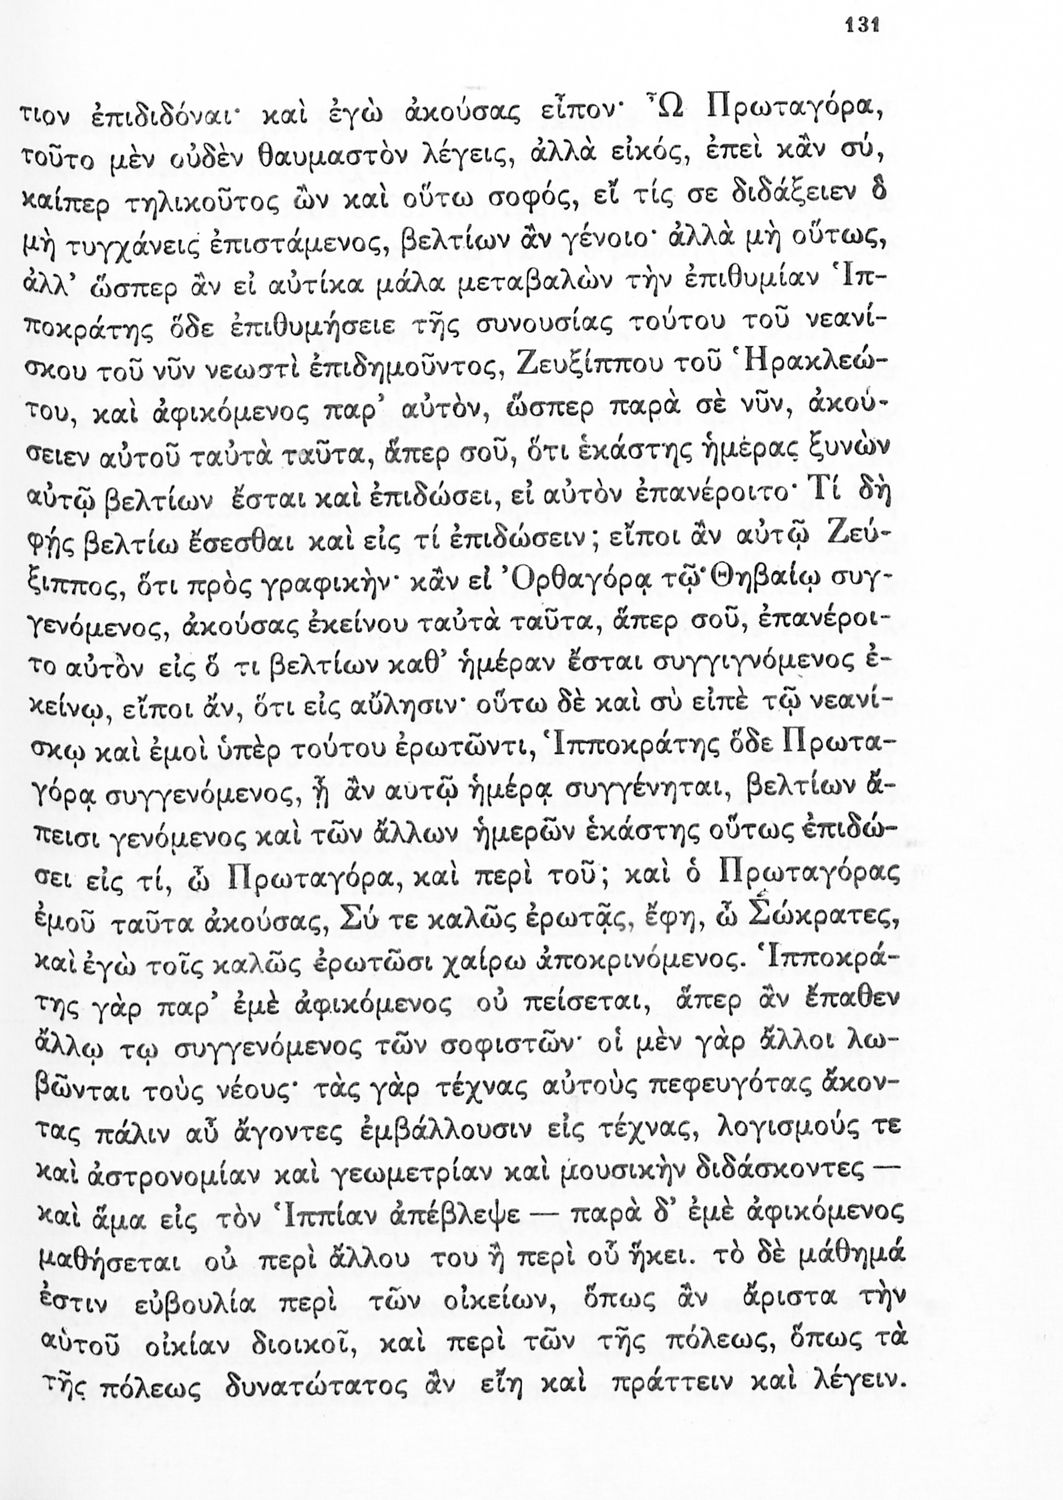 131
τιον ἐπιδιδόναι· καὶ ἐγὼ ἀκούσας εἶπον· Ὦ Πρωταγόρα,
τοῦτο μὲν οὐδὲν θαυμαστὸν λέγεις, ἀλλὰ εἰκός, ἐπεὶ κἂν σύ,
καίπερ τηλικοῦτος ὢν καὶ οὕτω σοφός, εἴ τίς σε διδάξειεν ὃ
μὴ τυγχάνεις ἐπιστάμενος, βελτίων ἂν γένοιο· ἀλλὰ μὴ οὕτως,
ἀλλ’ ὥσπερ ἂν εἰ αὐτίκα μάλα μεταβαλὼν τὴν ἐπιθυμίαν Ἱπ-
ποκράτης ὅδε ἐπιθυμήσειε τῆς συνουσίας τούτου τοῦ νεανί-
σκου τοῦ νῦν νεωστὶ ἐπιδημοῦντος, Ζευξίππου τοῦ Ἡρακλεώ-
του, καὶ ἀφικόμενος παρ’ αὐτὸν, ὥσπερ παρὰ σὲ νῦν, ἀκού-
σειεν αὐτοῦ ταὐτὰ ταῦτα, ἅπερ σοῦ, ὅτι ἑκάστης ἡμέρας ξυνὼν
αὐτῷ βελτίων ἔσται καὶ ἐπιδώσει, εἰ αὐτὸν ἐπανέροιτο· Τί δὴ
φῄς βελτίω ἔσεσθαι καὶ εἰς τί ἐπιδώσειν; εἴποι ἂν αὐτῷ Ζεύ-
ξιππος, ὅτι πρὸς γραφικὴν· κἂν εἰ Ὀρθαγόρᾳ τῷ Θηβαίῳ συγ-
γενόμενος, ἀκούσας ἐκείνου ταὐτὰ ταῦτα, ἅπερ σοῦ, ἐπανέροι-
το αὐτὸν εἰς ὅ τι βελτίων καθ’ ἡμέραν ἔσται συγγιγνόμενος ἐ-
κείνῳ, εἴποι ἄν, ὅτι εἰς αὔλησιν· οὕτω δὲ καὶ σὺ εἰπὲ τῷ νεανί-
σκῳ καὶ ἐμοὶ ὑπὲρ τούτου ἐρωτῶντι, Ἱπποκράτης ὅδε Πρωτα-
γόρᾳ συγγενόμενος, ᾗ ἂν αὐτῷ ἡμέρᾳ συγγένηται, βελτίων ἄ-
πεισι γενόμενος καὶ τῶν ἄλλων ἡμερῶν ἑκάστης οὕτως ἐπιδώ-
σει εἰς τί, ὦ Πρωταγόρα, καὶ περὶ τοῦ; καὶ ὁ Πρωταγόρας
ἐμοῦ ταῦτα ἀκούσας, Σύ τε καλῶς ἐρωτᾷς, ἔφη, ὦ Σώκρατες,
καὶ ἐγὼ τοῖς καλῶς ἐρωτῶσι χαίρω ἀποκρινόμενος. Ἱπποκρά-
της γὰρ παρ’ ἐμὲ ἀφικόμενος οὐ πείσεται, ἅπερ ἂν ἔπαθεν
ἄλλῳ τῳ συγγενόμενος τῶν σοφιστῶν· οἱ μὲν γὰρ ἄλλοι λω-
βῶνται τοὺς νέους· τὰς γὰρ τέχνας αὐτοὺς πεφευγότας ἄκον-
τας πάλιν αὖ ἄγοντες ἐμβάλλουσιν εἰς τέχνας, λογισμούς τε
καὶ ἀστρονομίαν καὶ γεωμετρίαν καὶ μουσικὴν διδάσκοντες —
καὶ ἅμα εἰς τὸν Ἱππίαν ἀπέβλεψε — παρὰ δ’ ἐμὲ ἀφικόμενος
μαθήσεται οὐ περὶ ἄλλου του ἢ περὶ οὗ ἥκει. τὸ δὲ μάθημά
ἐστιν εὐβουλία περὶ τῶν οἰκείων, ὅπως ἂν ἄριστα τὴν
αὑτοῦ οἰκίαν διοικοῖ, καὶ περὶ τῶν τῆς πόλεως, ὅπως τὰ
τῆς πόλεως δυνατώτατος ἂν εἴη καὶ πράττειν καὶ λέγειν.